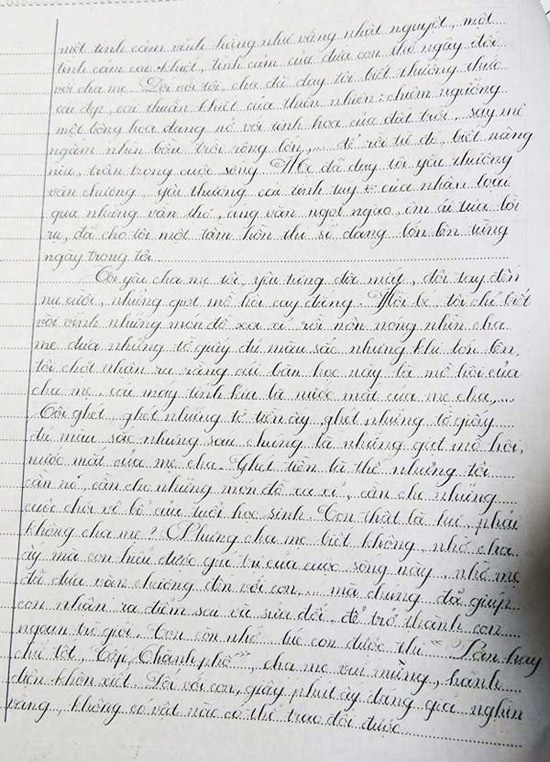 một tình cảm vĩnh hằng như vầng nhật nguyệt, một
tình cảm cao khiết, tình cảm của đứa con thơ ngây đối
với cha mẹ. Đối với tôi, cha đã dạy tôi biết thưởng thức
cái đẹp, cái thuần khiết của thiên nhiên: chiêm ngưỡng
một bông hoa đang nở với tinh hoa của đất trời, say mê
ngắm nhìn bầu trời rộng lớn,... để rồi từ đó, biết nâng
niu, trân trọng cuộc sống. Mẹ đã dạy tôi yêu thương
văn chương, yêu thương cái tinh tuý của nhân loại
qua những vần thơ, áng văn ngọt ngào, êm ái tựa lời
ru, đã cho tôi một tâm hồn thi sĩ đang lớn lên từng
ngày trong tôi.
Tôi yêu cha mẹ tôi, yêu từng đôi mắt, đôi tay đến
nụ cười, những giọt mồ hôi cay đắng. Hồi bé, tôi chỉ biết
vòi vĩnh những món đồ xa xỉ rồi nôn nóng nhìn cha
mẹ đưa những tờ giấy đủ màu sắc nhưng khi lớn lên,
tôi chợt nhận ra rằng cái bàn học này là mồ hôi của
cha mẹ, cái máy tính kia là nước mắt của mẹ cha,...
Tôi ghét, ghét những tờ tiền ấy, ghét những tờ giấy
đủ màu sắc nhưng sau chúng là những giọt mồ hôi,
nước mắt của mẹ cha. Ghét tiền là thế nhưng tôi
cần nó, cần cho những món đồ xa xỉ, cần cho những
cuộc chơi vô bổ của tuổi học sinh. Con thật là hư, phải
không cha mẹ? Nhưng cha mẹ biết không, nhờ cha
ấy mà con hiểu được giá trị của cuộc sống này, nhờ mẹ
đã đưa văn chương đến với con,... mà chúng đã giúp
con nhận ra điểm sai và sửa đổi, để trở thành con
ngoan trò giỏi. Con còn nhớ, lúc con được thi "Làm hay
chữ tốt, Cấp Thành phố", cha mẹ vui mừng, hãnh
diện khôn xiết. Đối với con, giây phút ấy đáng giá nghìn
vàng, không có vật nào có thể trao đổi được.